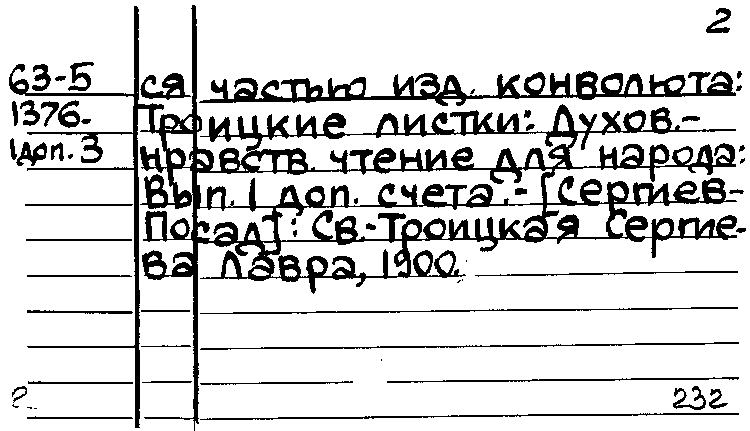 2
63-5 ся частью изд. конволюта:
1376- Троицкие листки: Духов.-
1доп. 3 нравств. чтение для народа:
Вып. 1 доп. счета.- [Сергиев-
Посад]: Св.-Троицкая Сергие-
ва Лавра, 1900.
232